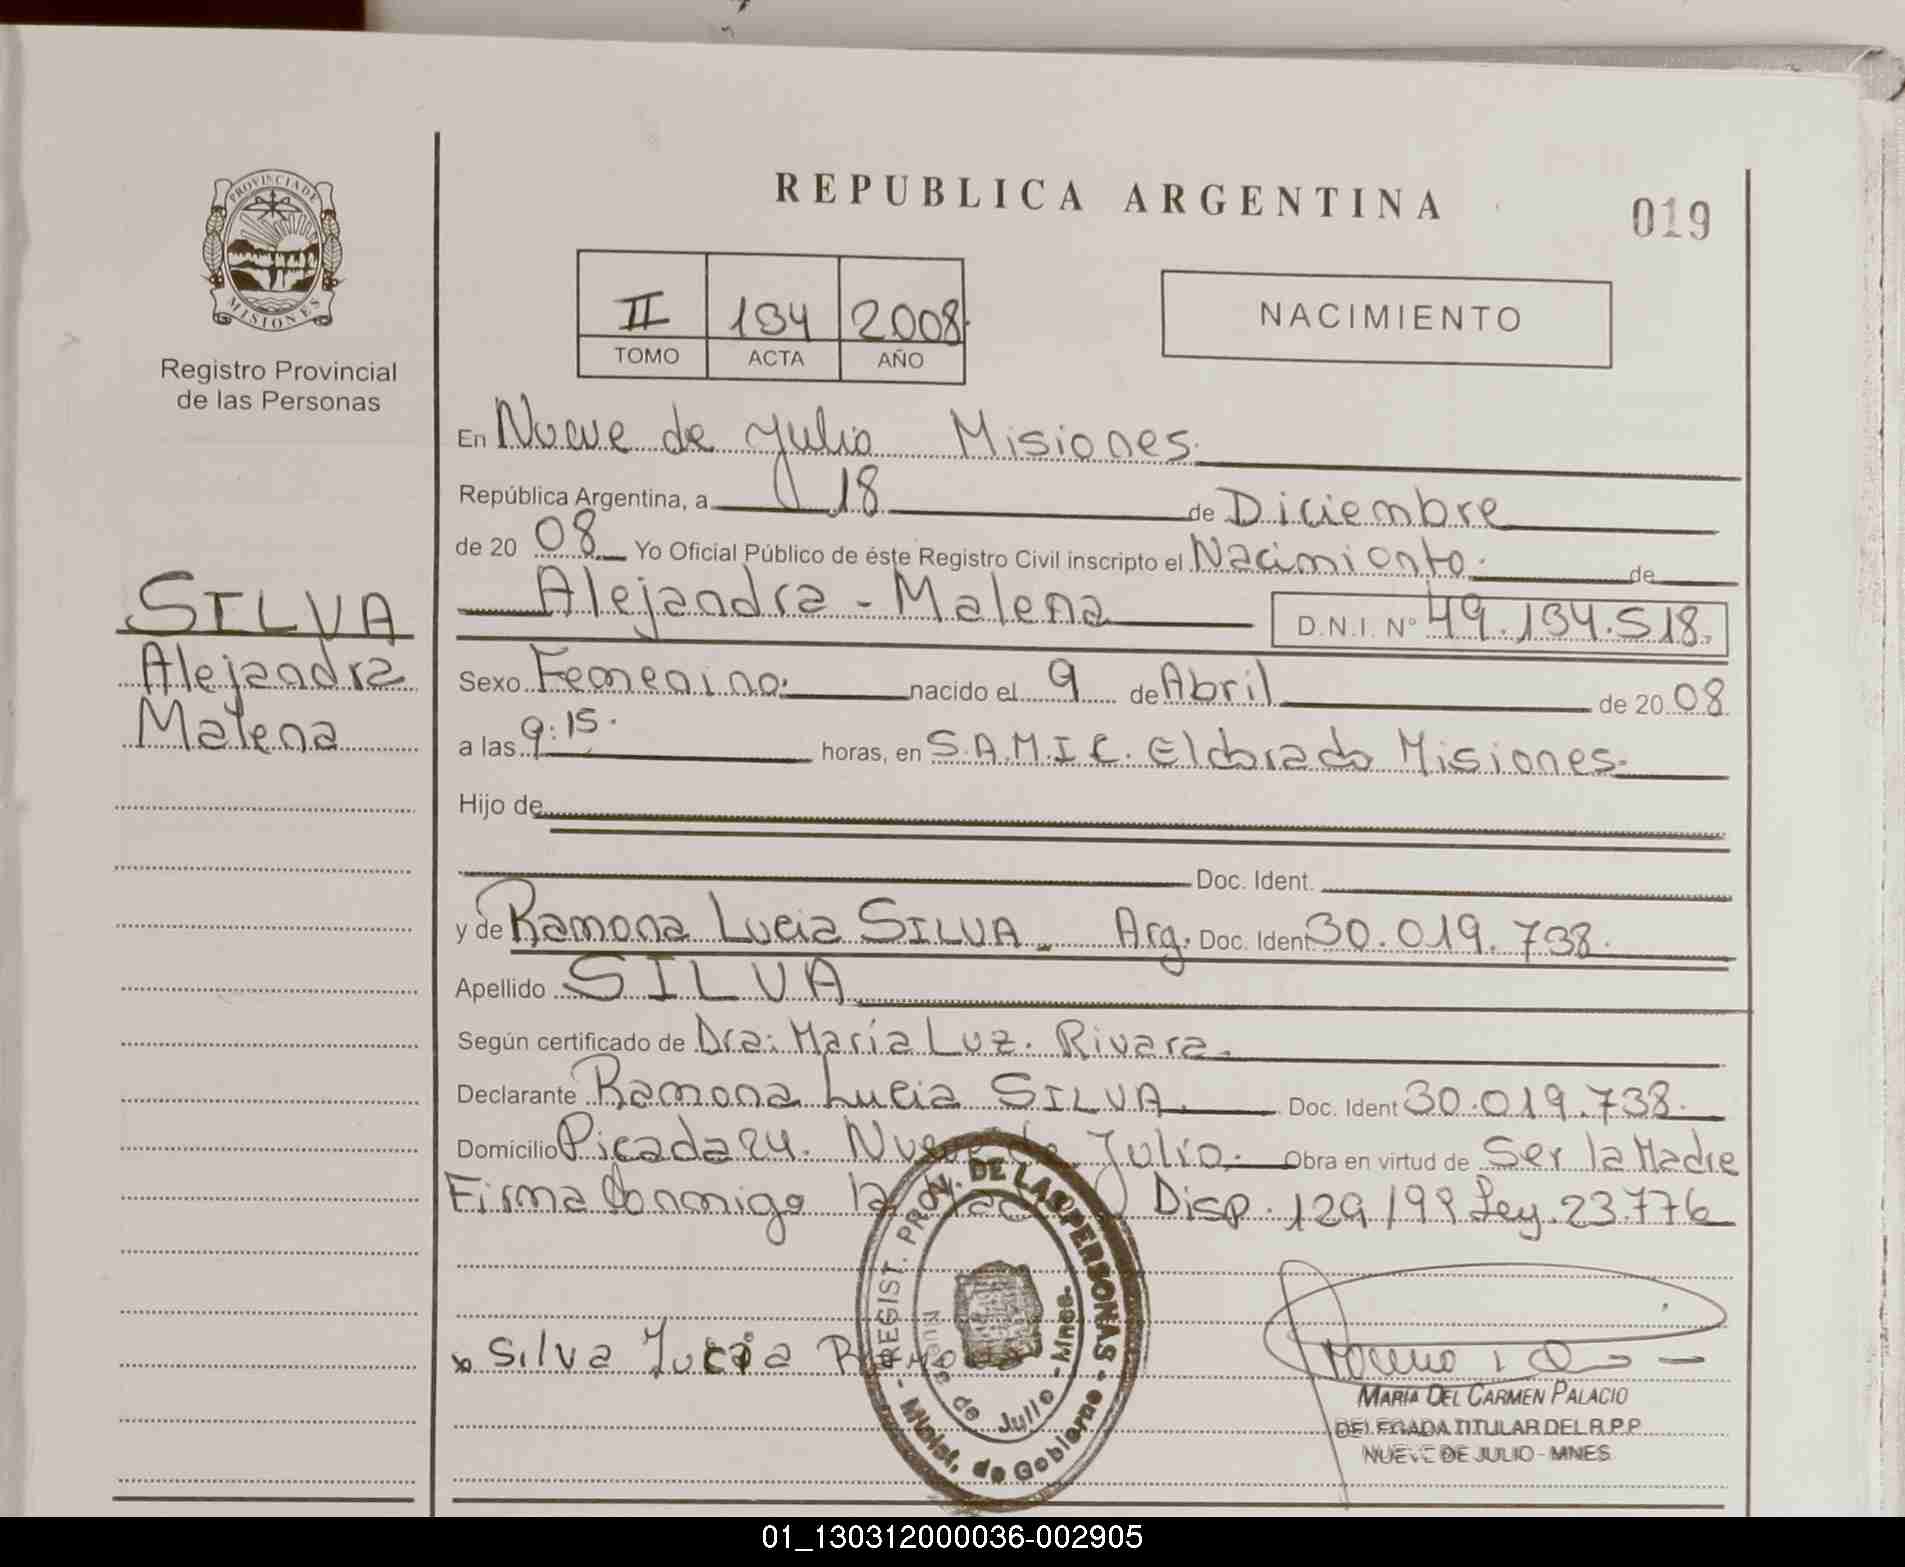 REPUBLICA ARGENTINA
019
PROVINCIA DE
MISIONES
Registro Provincial
de las Personas
II 134 2008
TOMO ACTA AÑO
NACIMIENTO
En Nueve de Julio Misiones.
República Argentina, a 18 de Diciembre
de 20 08 Yo Oficial Público de éste Registro Civil inscripto el Nacimiento. de
Alejandra - Malena D.N.I. N° 49.134.518.
SILVA
Alejandra
Malena
Sexo Femenino. nacido el 9 de Abril de 20 08
a las 9:15. horas, en S.A.M.I.C. Eldorado Misiones.
Hijo de
Doc. Ident.
y de Ramona Lucia SILVA. Arg. Doc. Ident 30.019.738.
Apellido SILVA
Según certificado de Dra: María Luz. Rivara.
Declarante Ramona Lucia SILVA. Doc. Ident 30.019.738.
Domicilio Picada 24. Nueve de Julio. Obra en virtud de Ser la Madre
Firma Conmigo la Disp. 129/99 Ley. 23.776
x Silva Lucia Ramona
REGIST. PROV. DE LAS PERSONAS
Nueve de Julio - Mnes.
- Minist. de Gobierno -
MARIA DEL CARMEN PALACIO
DELEGADA TITULAR DEL R.P.P.
NUEVE DE JULIO - MNES
01_130312000036-002905